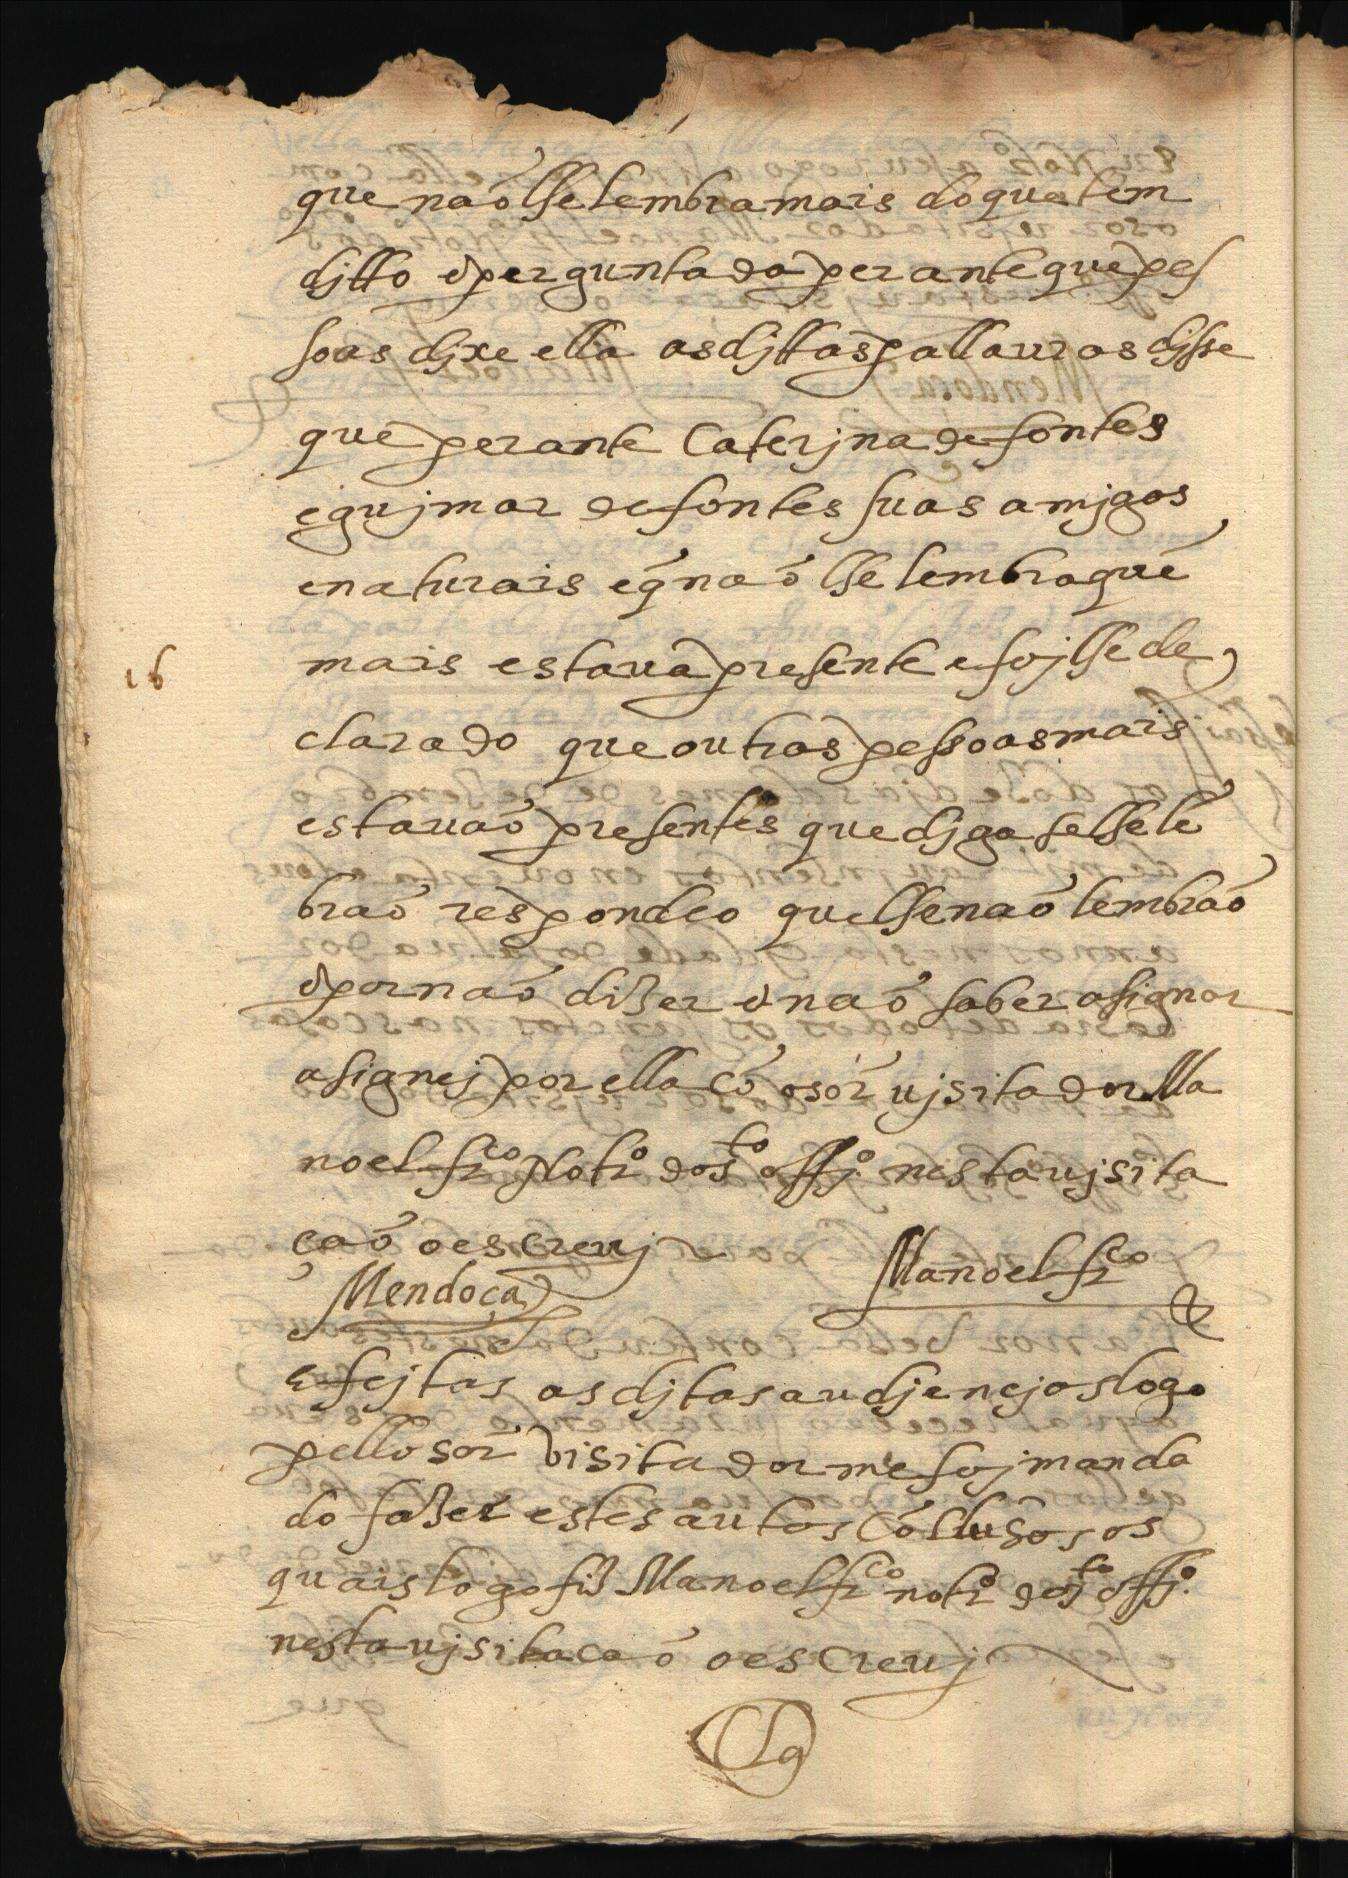 que não lhe lembra mais do que tem
djtto e perguntada perante que pes
soas djxe ella as djttas pallauras djsse
que perante Caterjna de fontes
e gujmar de fontes suas amjgas
e naturais e q̃ não lhe lembra quẽ
mais estaua presente e foj lhe de
16
clarado que outras pessoas mais
estauaõ presentes que djga se lhe lẽ
braõ respondeo que lhe naõ lembraõ
e por naõ dizer e naõ saber asignar
asignej por ella cõ o sor̃ ujsitador Ma
noel frco Notro do sto offjo nesta ujsita
çaõ o escreuj
Mendoça Manoel frco
e fejtas as djtas audjencjas logo
pello sor̃ visitador me foj manda
do fazer estes autos cõclusos os
quais logo fiz Manoel frco notro do sto offjo
nesta ujsitacaõ o escreuj
Clo